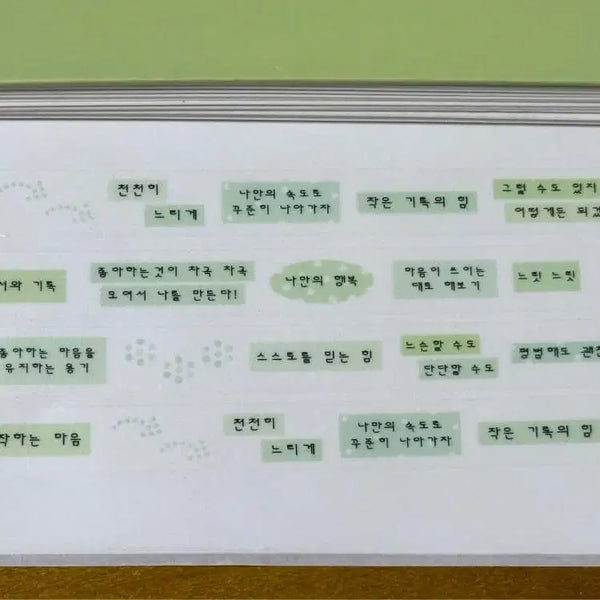 천천히
느리게
나만의 속도로
꾸준히 나아가자
작은 기록의 힘
그럴 수도 있지
어떻게든 되겠
서와 기록
좋아하는것이 차곡 차곡
모여서 나를 만든다!
나만의 행복
마음이 쓰이는
대로 해보기
느릿 느릿
좋아하는 마음을
유지하는 용기
스스로를 믿는 힘
느슨할 수도
단단할 수도
평범해도 괜찮
작하는 마음
천천히
느리게
나만의 속도로
꾸준히 나아가자
작은 기록의 힘